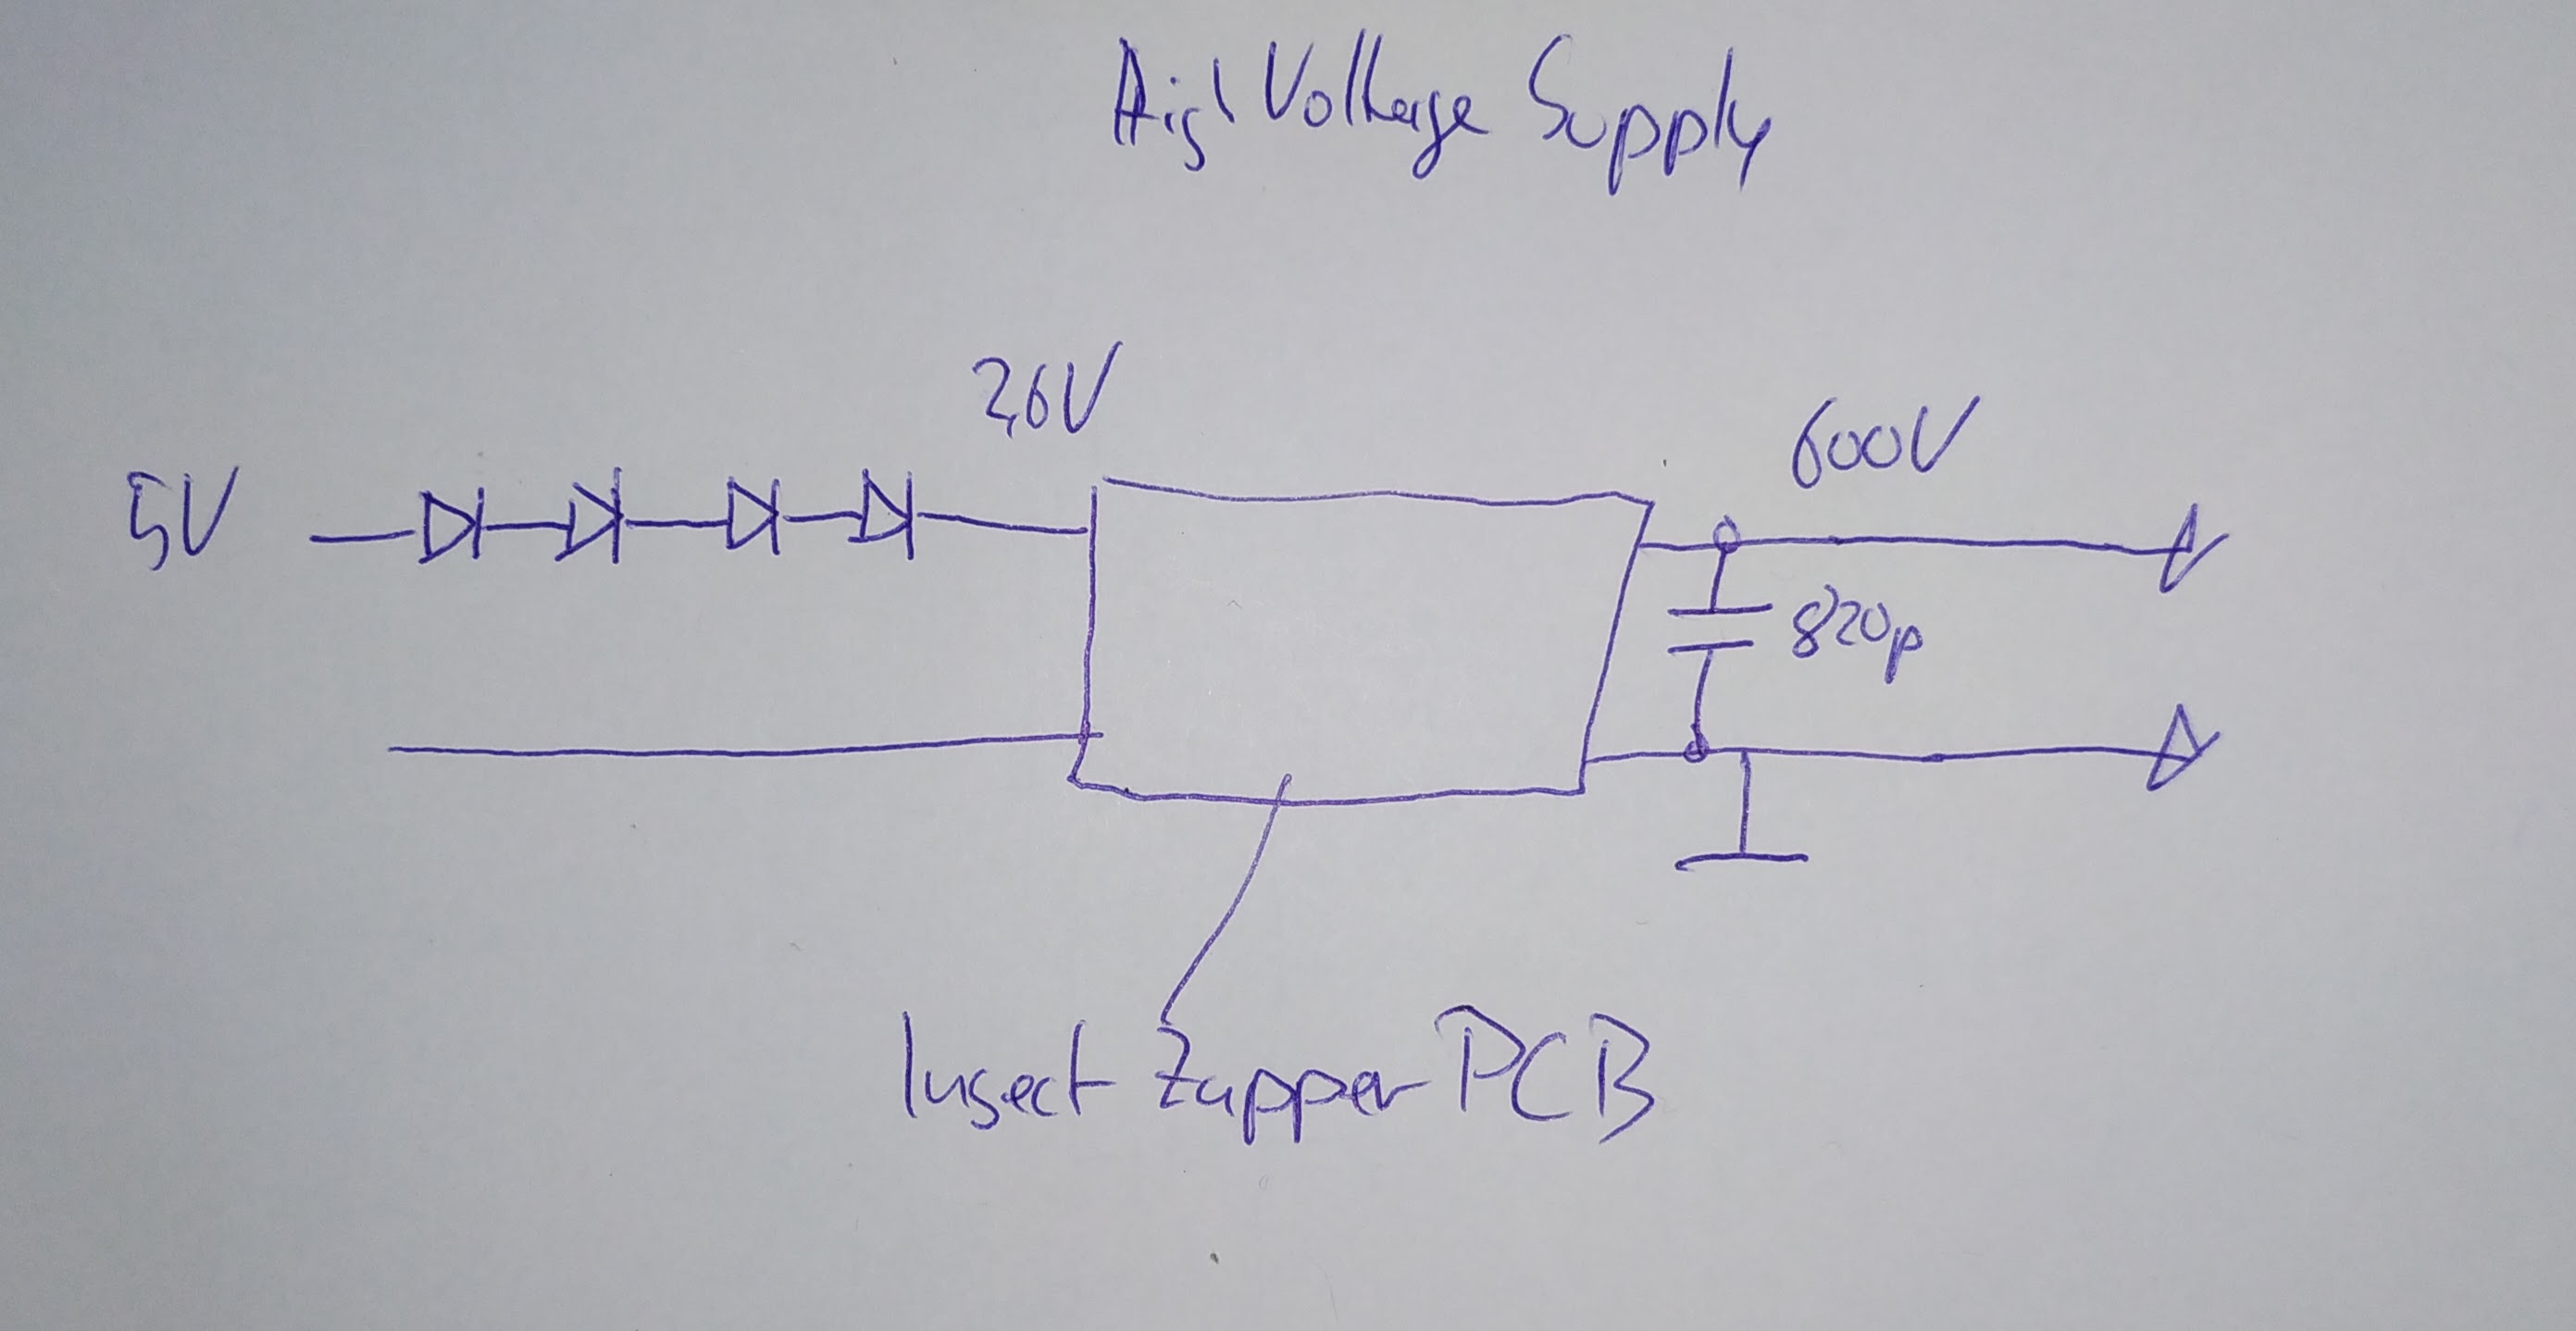 High Voltage Supply
2,6V
600V
5V
820p
Insect Zapper PCB